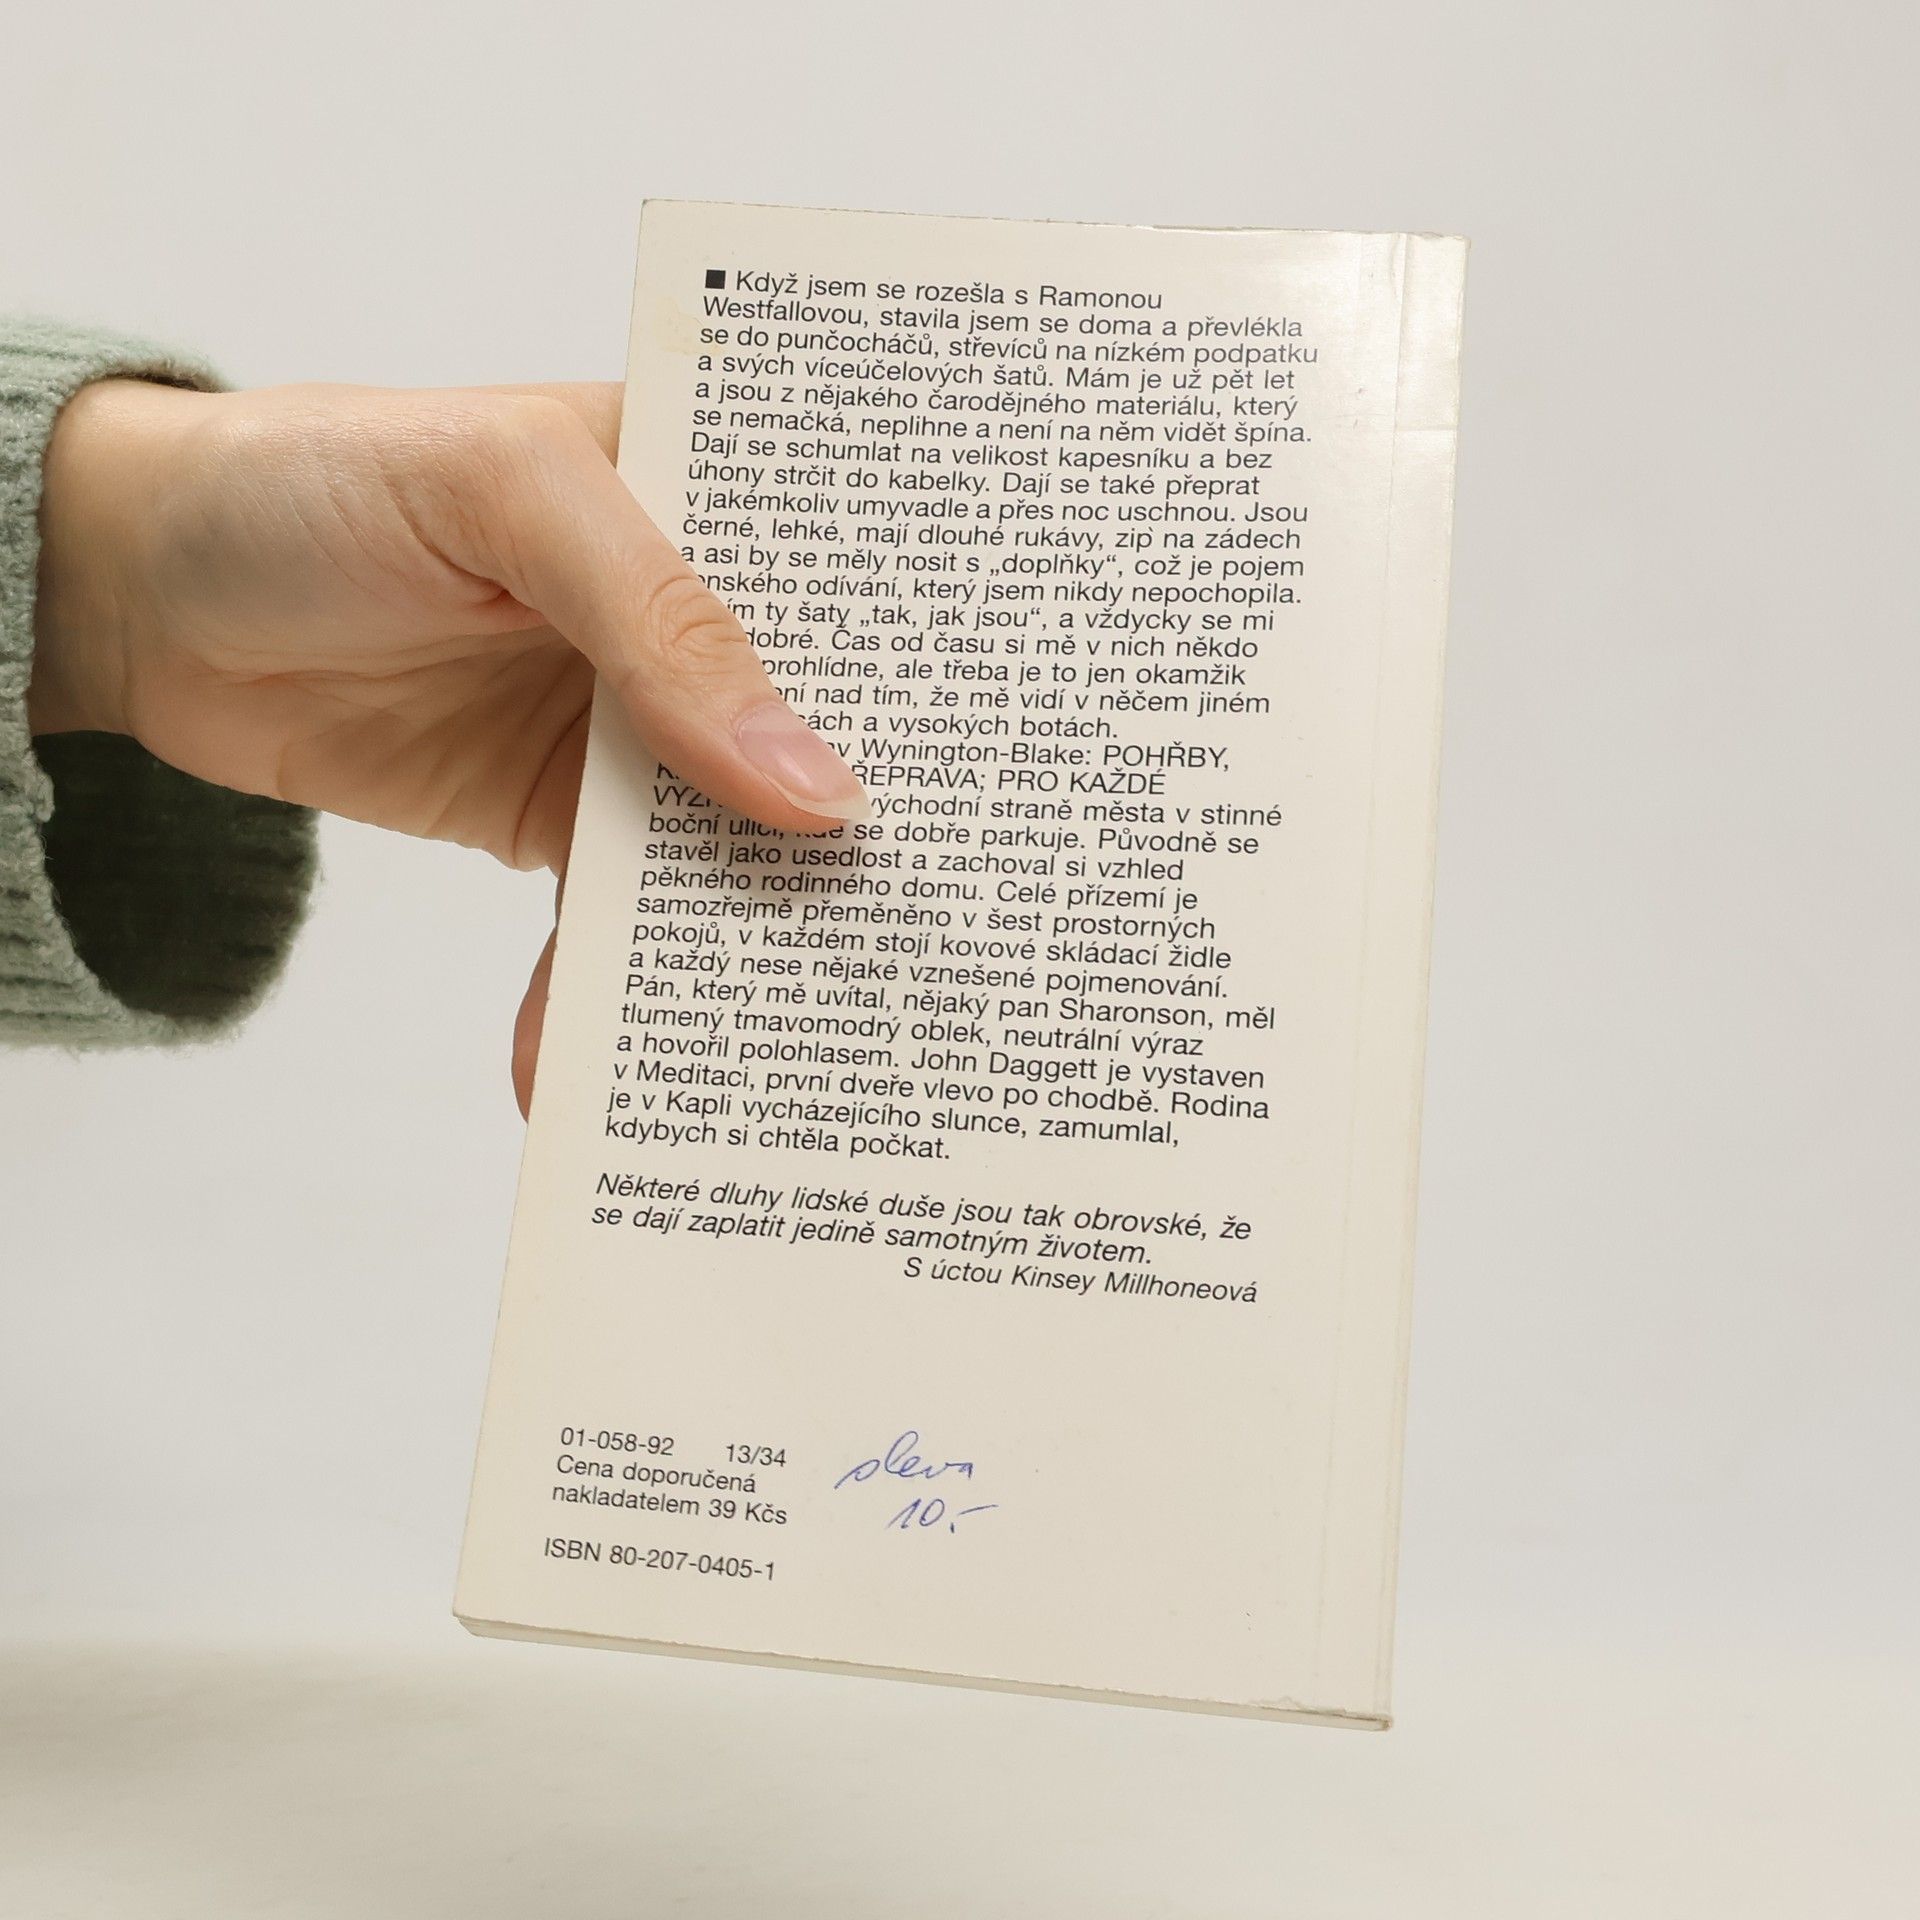 ■ Když jsem se rozešla s Ramonou
Westfallovou, stavila jsem se doma a převlékla
se do punčocháčů, střevíců na nízkém podpatku
a svých víceúčelových šatů. Mám je už pět let
a jsou z nějakého čarodějného materiálu, který
se nemačká, neplihne a není na něm vidět špína.
Dají se schumlat na velikost kapesníku a bez
úhony strčit do kabelky. Dají se také přeprat
v jakémkoliv umyvadle a přes noc uschnou. Jsou
černé, lehké, mají dlouhé rukávy, zip na zádech
a asi by se měly nosit s „doplňky“, což je pojem
odívání, který jsem nikdy nepochopila.
ty šaty „tak, jak jsou“, a vždycky se mi
dobré. Čas od času si mě v nich někdo
prohlídne, ale třeba je to jen okamžik
nad tím, že mě vidí v něčem jiném
a vysokých botách.
Wynington-Blake: POHŘBY,
PRO KAŽDÉ
východní straně města v stinné
boční ulici, kde se dobře parkuje. Původně se
stavěl jako usedlost a zachoval si vzhled
pěkného rodinného domu. Celé přízemí je
samozřejmě přeměněno v šest prostorných
pokojů, v každém stojí kovové skládací židle
a každý nese nějaké vznešené pojmenování.
Pán, který mě uvítal, nějaký pan Sharonson, měl
tlumený tmavomodrý oblek, neutrální výraz
a hovořil polohlasem. John Daggett je vystaven
v Meditaci, první dveře vlevo po chodbě. Rodina
je v Kapli vycházejícího slunce, zamumlal,
kdybych si chtěla počkat.
Některé dluhy lidské duše jsou tak obrovské, že
se dají zaplatit jedině samotným životem.
S úctou Kinsey Millhoneová
01-058-92 13/34
Cena doporučená
nakladatelem 39 Kčs
sleva
10,-
ISBN 80-207-0405-1